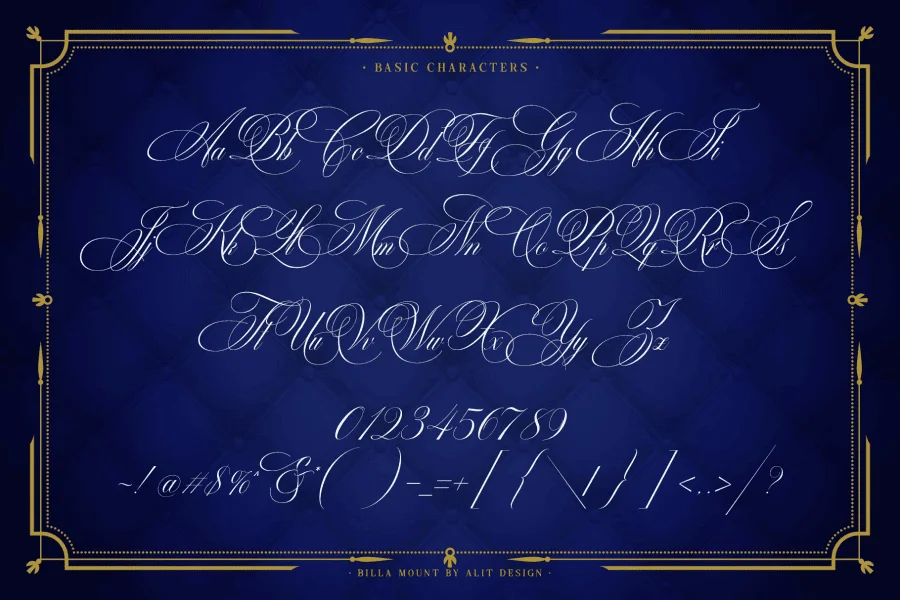 · BASIC CHARACTERS ·
Aa Bb Cc Dd Ff Gg Hh Ii
Jj Kk Ll Mm Nn Oo Pp Qq Rr Ss
Tt Uu Vv Ww Xx Yy Zz
0123456789
~! @#$%^&*( ) -_=+ [ { \ | / } ] <..> / ?
· BILLA MOUNT BY ALIT DESIGN ·